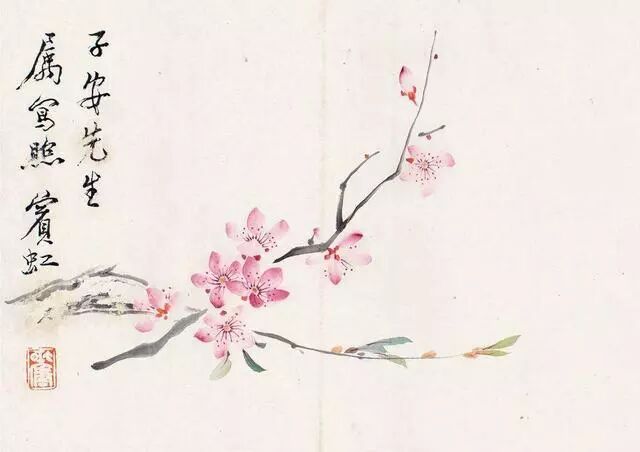 子安先生
属寫照 賓虹